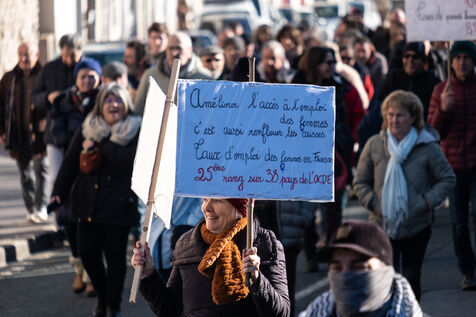 Améliorer l'accès à l'emploi
des femmes
c'est aussi renflouer les caisses
Taux d'emploi des femmes en France
25ème rang sur 38 pays de l'OCDE